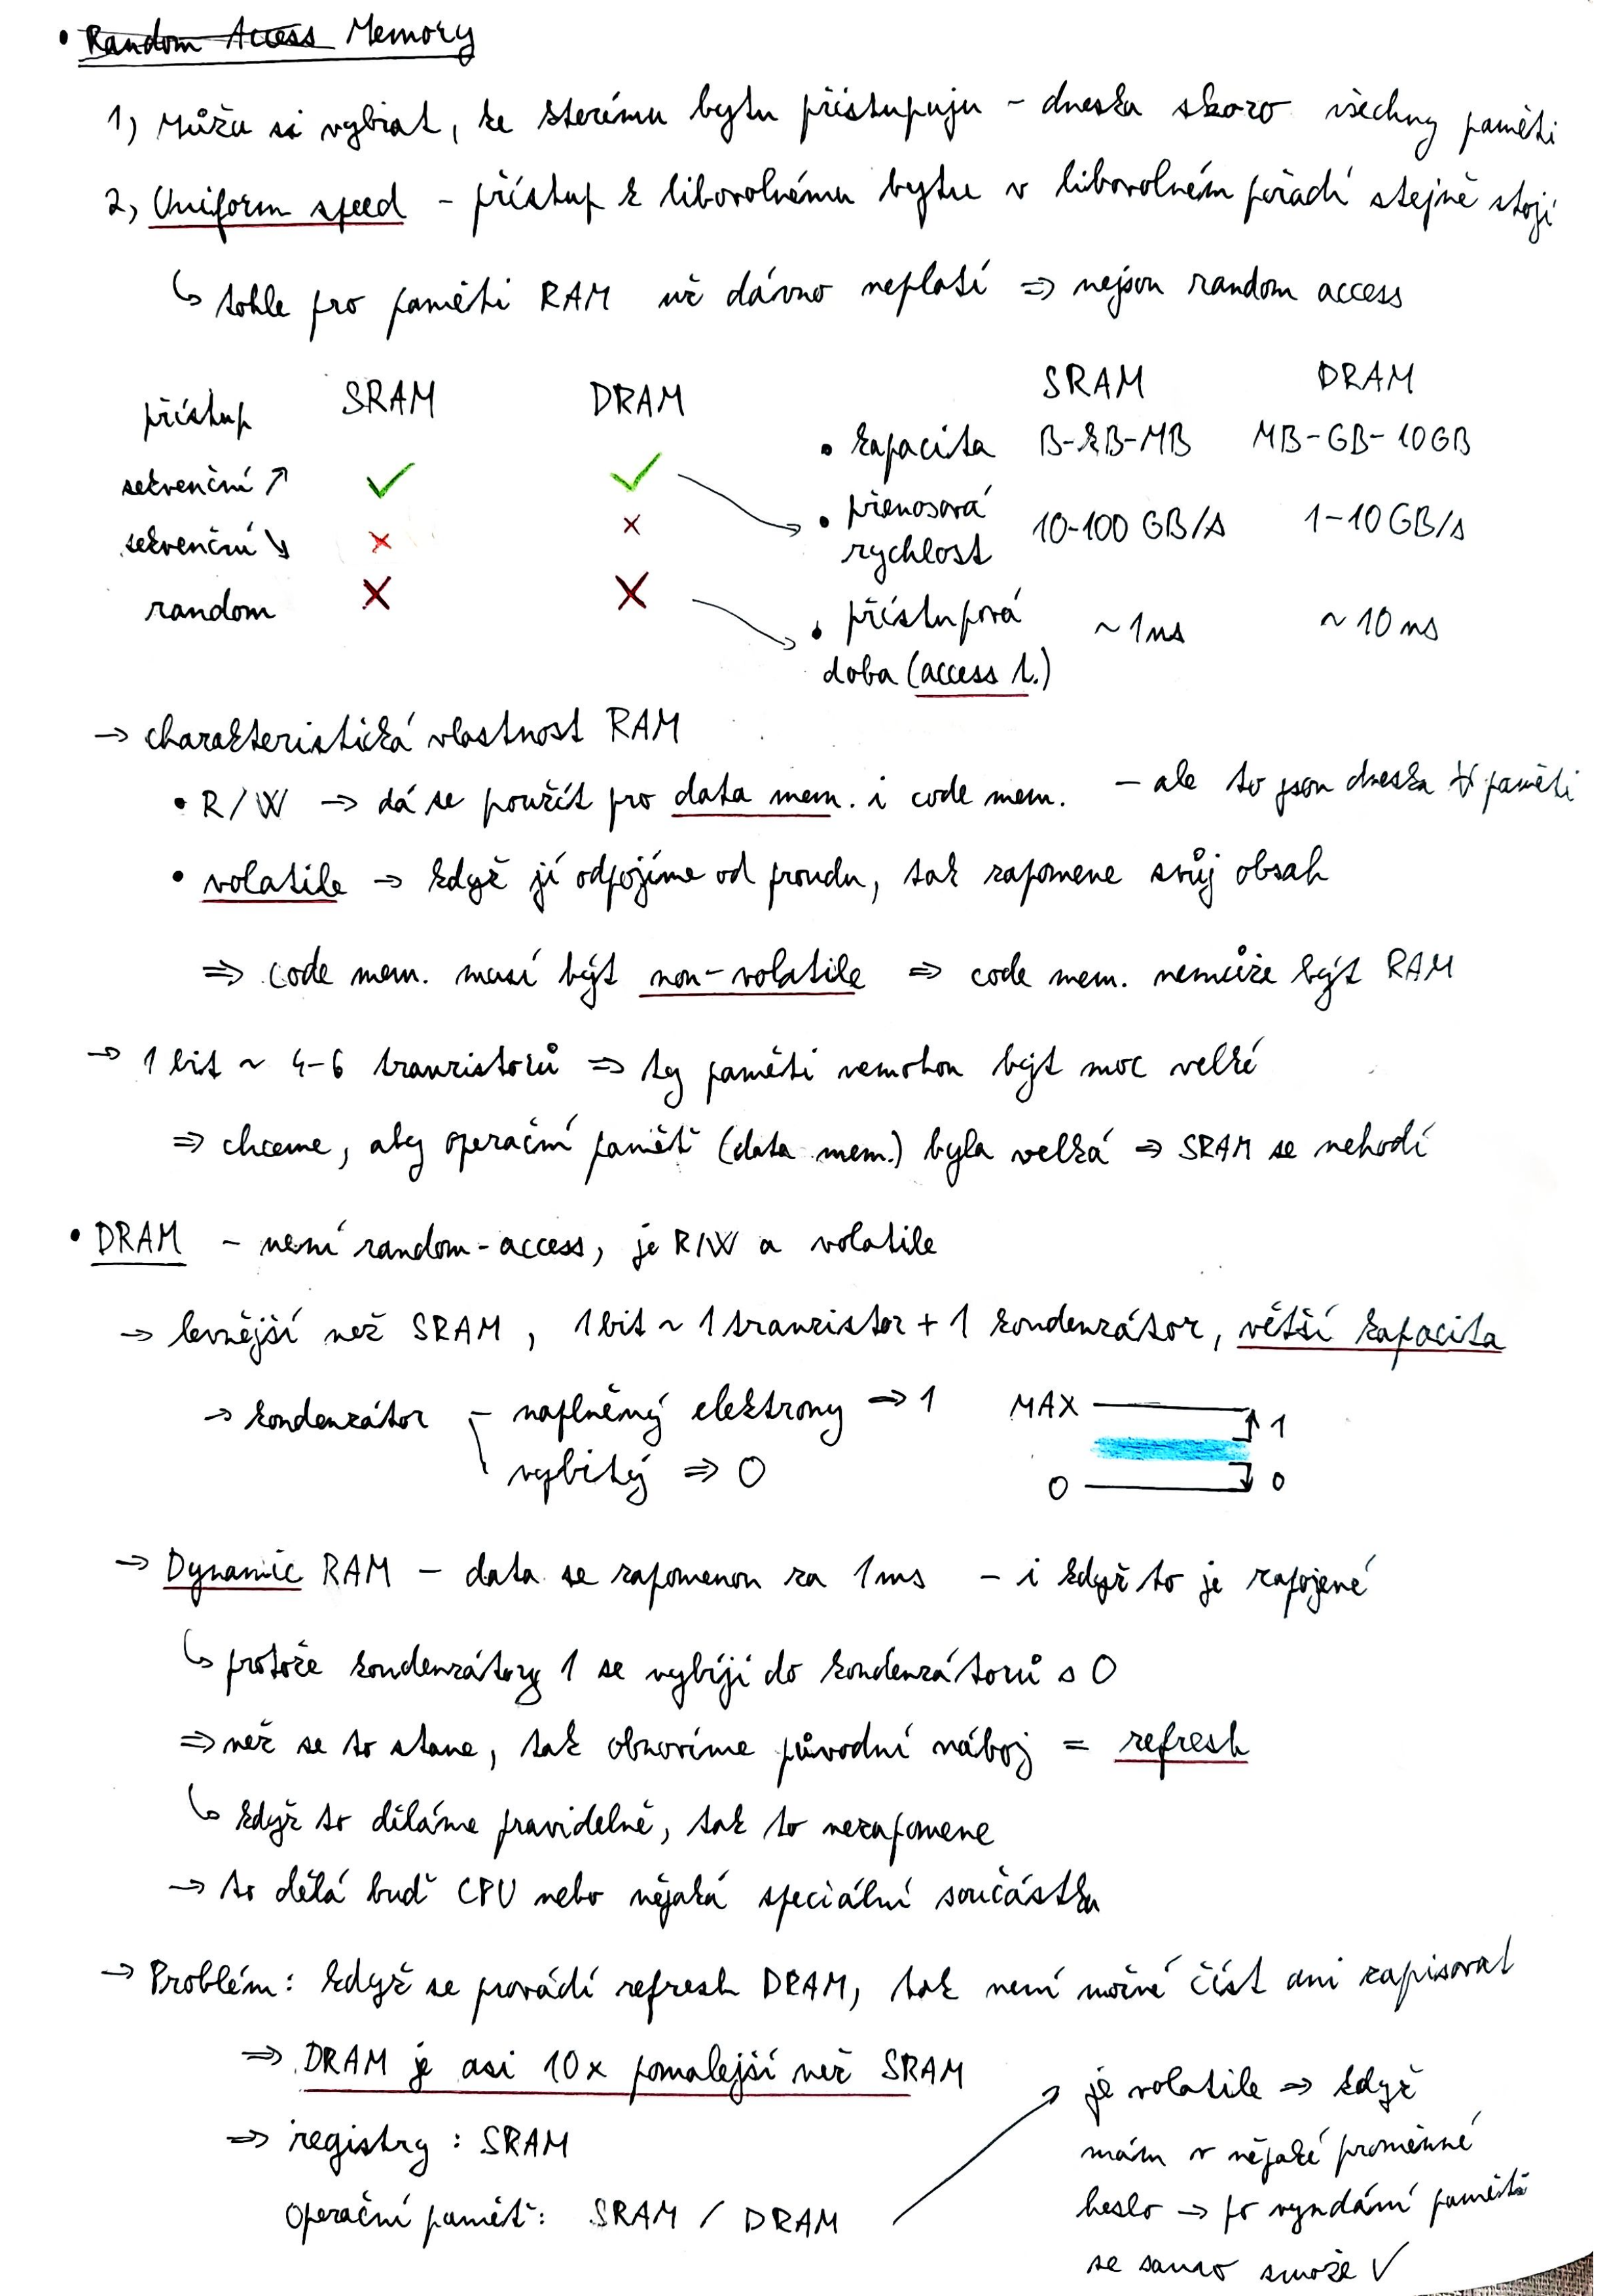 • Random Access Memory
1) Můžu si vybírat, ke kterému bytu přistupuju - dneska skoro všechny paměti
2) Uniform speed - přístup k libovolnému bytu v libovolném pořadí stejně stojí
↳ tohle pro paměti RAM už dávno neplatí ⇒ nejsou random access
přístup SRAM DRAM
sekvenční ↗ ✓ ✓
sekvenční ↘ × ×
random × ×
SRAM DRAM
• kapacita B-kB-MB MB-GB-10GB
• přenosová rychlost 10-100 GB/s 1-10 GB/s
• přístupová ~1ns ~10ns
doba (access t.)
→ charakteristická vlastnost RAM
• R/W → dá se použít pro data mem. i code mem. - ale to jsou dneska ∀ paměti
• volatile → když jí odpojíme od proudu, tak zapomene svůj obsah
⇒ code mem. musí být non-volatile ⇒ code mem. nemůže být RAM
→ 1 bit ~ 4-6 tranzistorů ⇒ ty paměti nemohou být moc velké
⇒ chceme, aby operační paměť (data mem.) byla velká ⇒ SRAM se nehodí
• DRAM - není random-access, je R/W a volatile
→ levnější než SRAM, 1 bit ~ 1 tranzistor + 1 kondenzátor, větší kapacita
→ kondenzátor - naplněný elektrony ⇒ 1
vybitý ⇒ 0
MAX 1
0 0
→ Dynamic RAM - data se zapomenou za 1ms - i když to je zapojené
↳ protože kondenzátory 1 se vybíjí do kondenzátorů s 0
⇒ než se to stane, tak obnovíme původní náboj = refresh
↳ když to děláme pravidelně, tak to nezapomene
→ to dělá buď CPU nebo nějaká speciální součástka
→ Problém: když se provádí refresh DRAM, tak není možné číst ani zapisovat
⇒ DRAM je asi 10x pomalejší než SRAM
⇒ registry: SRAM
Operační paměť: SRAM / DRAM
je volatile ⇒ když
mám v nějaké proměnné
heslo → po vyndání paměti
se samo smaže ✓